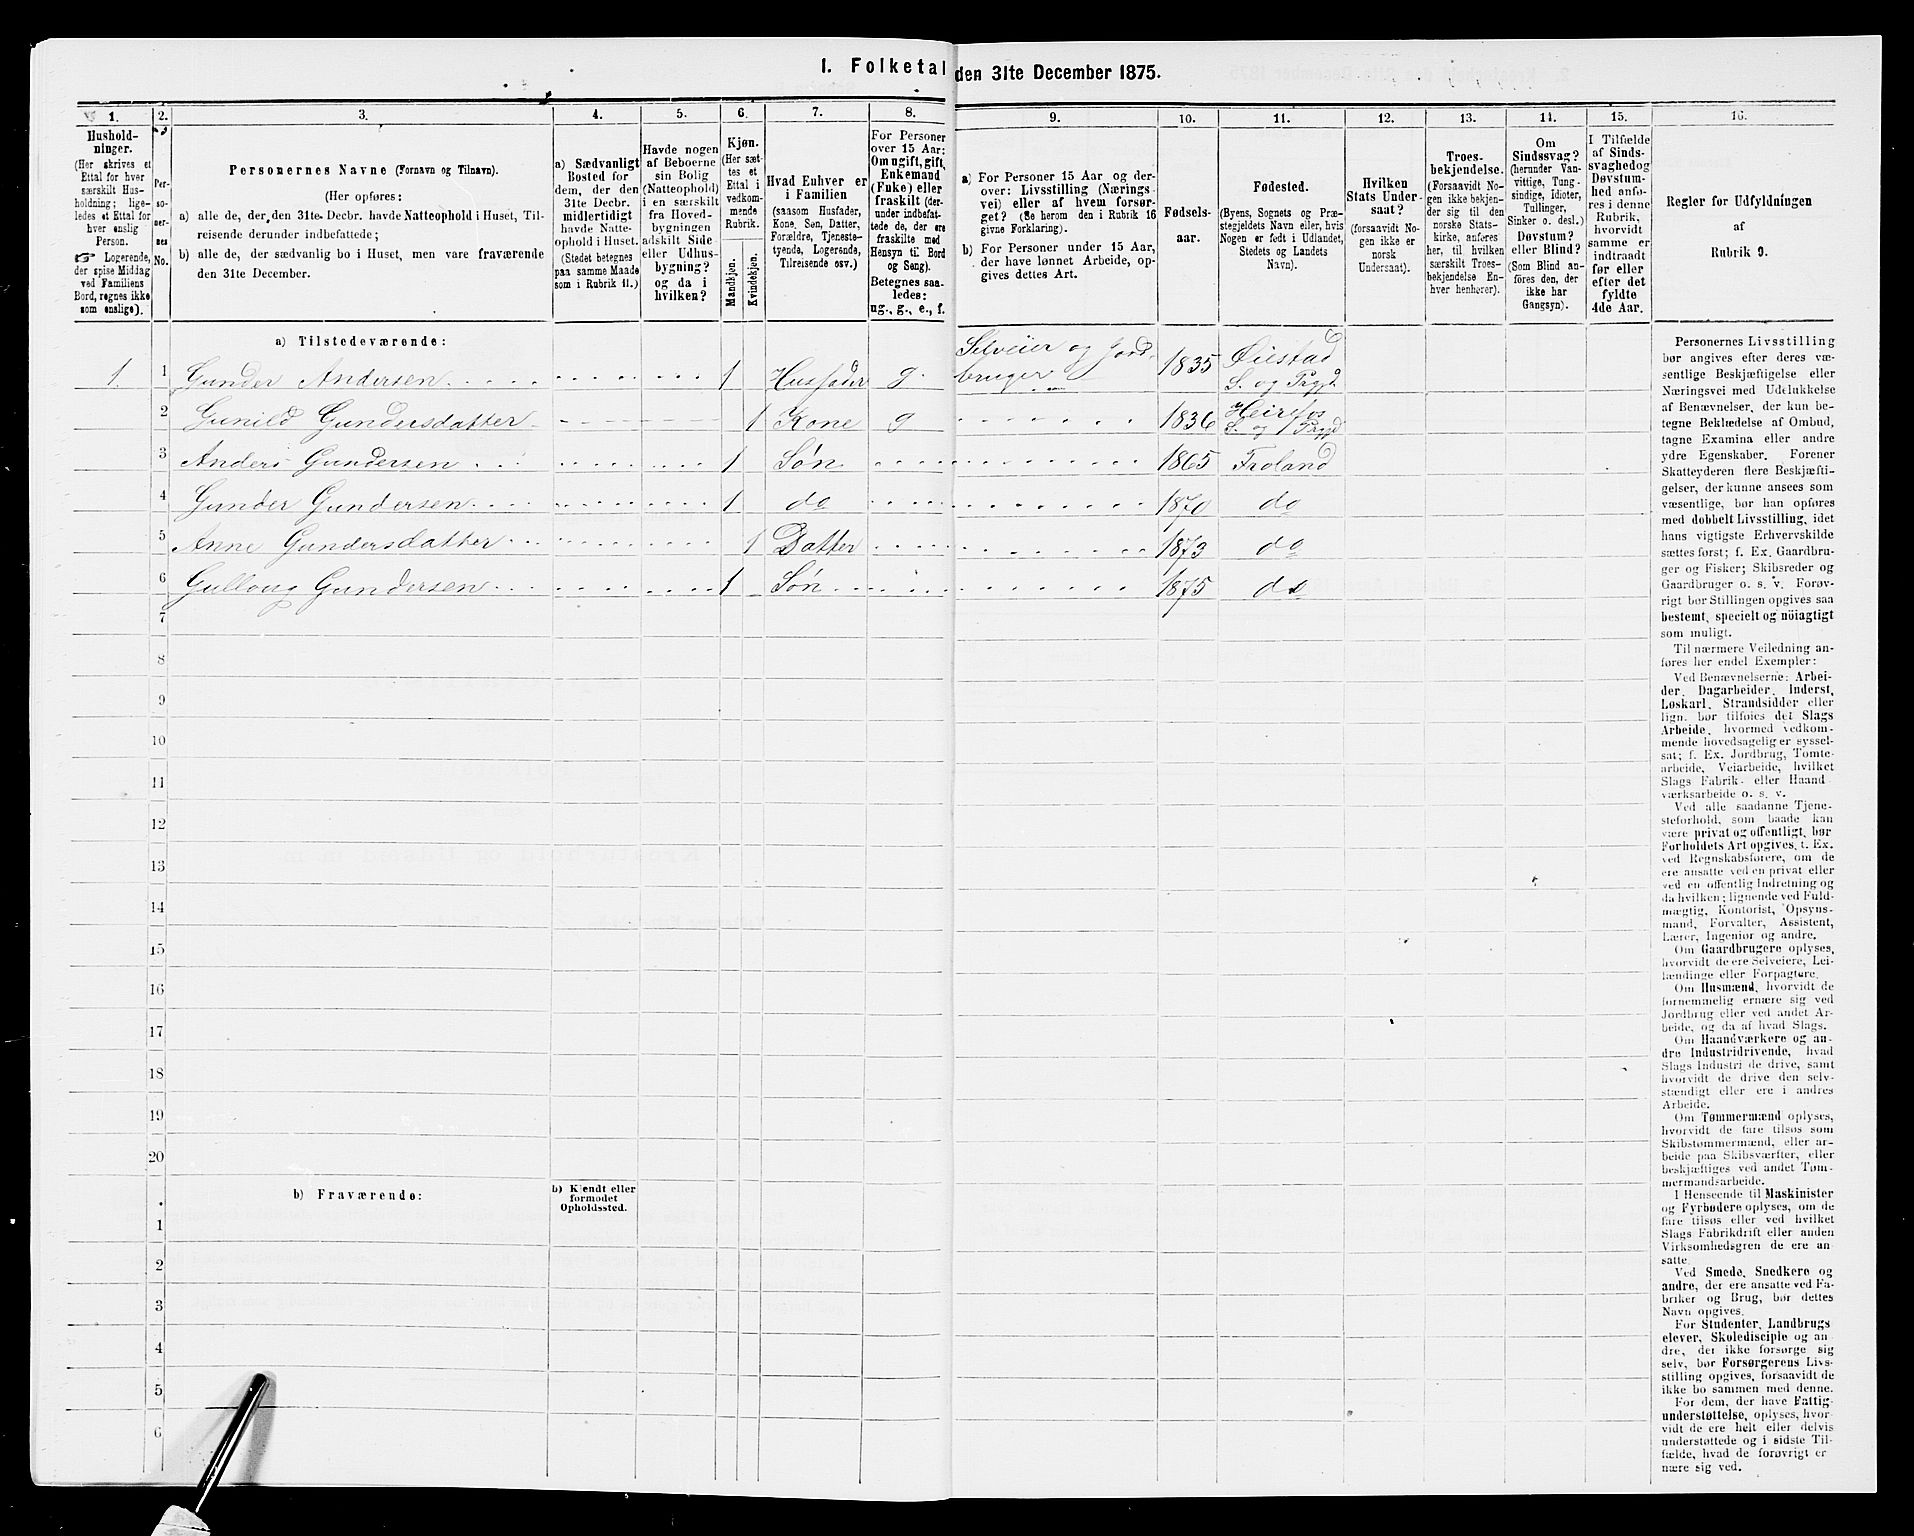 1. Folketal den 31te December 1875.
1. 2. 3. 4. 5. 6. 7. 8. 9. 10. 11. 12. 13. 14. 15. 16.
Hushold-
ninger.
(Her skrives et
Ettal for hver
særskilt Hus-
holdning; lige-
ledes et Ettal for
hver enslig
Person.
☞ Logerende,
der spise Middag
ved Familiens
Bord, regnes ikke
som enslige).
Per-
so-
ner-
nes
No.
Personernes Navne (Fornavn og Tilnavn).
(Her opføres:
a) alle de, der den 31te Decbr. havde Natteophold i Huset, Til-
reisende derunder indbefattede;
b) alle de, der sædvanlig bo i Huset, men vare fraværende
den 31te December.
a) Sædvanligt
Bosted for
dem, der den
31te Decbr.
midlertidigt
havde Natte-
ophold i Huset.
(Stedet betegnes
paa samme Maade
som i Rubrik 11.)
Havde nogen
af Beboerne
sin Bolig
(Natteophold)
i en særskilt
fra Hoved-
bygningen
adskilt Side-
eller Udhus-
bygning?
og da i
hvilken?
Kjøn.
(Her sæt-
tes et
Ettal i
vedkom-
mende
Rubrik.
Mandkjøn.
Kvindekjøn.
Hvad Enhver er
i Familien
(saasom Husfader,
Kone, Søn, Datter,
Forældre, Tjeneste-
tyende, Logerende,
Tilreisende osv.)
For Personer
over 15 Aar:
Om ugift, gift,
Enkemand
(Enke) eller
fraskilt (der-
under indbefat-
tede de, der ere
fraskilte med
Hensyn til Bord
og Seng).
Betegnes saa-
ledes:
ug., g., e., f.
a) For Personer 15 Aar og der-
over: Livsstilling (Nærings-
vei) eller af hvem forsør-
get? (Se herom den i Rubrik 16
givne Forklaring).
b) For Personer under 15 Aar,
der have lønnet Arbeide, op-
gives dettes Art.
Fødsels-
aar.
Fødested.
(Byens, Sognets og Præ-
stegjeldets Navn eller, hvis
Nogen er født i Udlandet,
Stedets og Landets
Navn).
Hvilken
Stats Under-
saat?
(forsaavidt No-
gen ikke er
norsk
Undersaat).
Troes-
bekjendelse.
(Forsaavidt No-
gen ikke bekjen-
der sig til den
norske Stats-
kirke, anføres
her, til hvilken
særskilt Troes-
bekjendelse En-
hver henhører).
Om
Sindssvag?
(herunder Van-
vittige, Tung-
sindige, Idioter,
Tullinger,
Sinker o. desl.)
Døvstum?
eller Blind?
(Som Blind an-
føres den, der
ikke har
Gangsyn).
I Tilfælde
af Sinds-
svaghed og
Døvstum-
hed anfø-
res i denne
Rubrik,
hvorvidt
samme er
indtraadt
før eller
efter det
fyldte
4de Aar.
Regler for Udfyldningen
af
Rubrik 9.
a) Tilstedeværende:
1. 1 Gunder Andersen 1 Husfader g. Selveier og Jord-
bruger 1835 Øiestad
S. og Prgjd.
2 Gunild Gundersdatter 1 Kone g 1836 Heirefos
S. og Prgjd
3 Anders Gundersen 1 Søn 1865 Froland
4 Gunder Gundersen 1 do 1870 do
5 Anne Gundersdatter 1 Datter 1873 do
6 Gulloug Gundersen 1 Søn 1875 do
7
8
9
10
11
12
13
14
15
16
17
18
19
20
b) Fraværende:
b) Kjendt eller
formodet
Opholdssted.
1
2
3
4
5
6
Personernes Livsstilling
bør angives efter deres væ-
sentlige Beskjæftigelse eller
Næringsvei med Udelukkelse
af Benævnelser, der kun be-
tegne Beklædelse af Ombud,
tagne Examina eller andre
ydre Egenskaber. Forener
Skatteyderen flere Beskjæfti-
gelser, der kunne ansees som
væsentlige, bør han opføres
med dobbelt Livsstilling, idet
hans vigtigste Erhvervskilde
sættes først; f. Ex. Gaardbru-
ger og Fisker; Skibsreder og
Gaardbruger o. s. v. Forøv-
rigt bør Stillingen opgives saa
bestemt, specielt og nöiagtigt
som muligt.
Til nærmere Veiledning an-
føres her endel Exempler:
Ved Benævnelserne: Arbei-
der, Dagarbeider, Inderst,
Løskarl, Strandsidder eller
lign. bør tilføies det Slags
Arbeide, hvormed vedkom-
mende hovedsagelig er syssel-
sat; f. Ex. Jordbrug, Tomte-
arbeide, Veiarbeide, hvilket
Slags Fabrik- eller Haand-
værksarbeide o. s. v.
Ved alle saadanne Tjene-
steforhold, som baade kan
være privat og offentligt, bør
Forholdets Art opgives, t. Ex.
ved Regnskabsførere, om de
ere ansatte ved en privat eller
ved en offentlig Indretning og
da hvilken; lignende ved Fuld-
mægtig, Kontorist, Opsyns-
mand, Forvalter, Assistent,
Lærer, Ingeniør og andre.
Om Gaardbrugere oplyses,
hvorvidt de ere Selveiere, Lei-
lændinge eller Forpagtere.
Om Husmænd, hvorvidt de
fornemmelig ernære sig ved
Jordbrug eller ved andet Ar-
beide, og da af hvad Slags.
Om Haandværkere og an-
dre Industridrivende, hvad
Slags Industri de drive, samt
hvorvidt de drive den selv-
stændigt eller ere i andres
Arbeide.
Om Tømmermænd oplyses,
hvorvidt de fare tilsøs som
Skibstømmermænd, eller ar-
beide paa Skibsværfter, eller
beskjæftiges ved andet Tøm-
mermandsarbeide.
I Henseende til Maskinister
og Fyrbødere oplyses, om de
fare tilsøs eller ved hvilket
Slags Fabrikdrift eller anden
Virksomhedsgren de ere an-
satte.
Ved Smede, Snedkere og
andre, der ere ansatte ved Fa-
briker og Brug, bør dettes
Navn opgives.
For Studenter, Landbrugs
elever, Skoledisciple og an
dre, der ikke forsørge sig
selv, bør Forsørgerens Livs-
stilling opgives, forsaavidt de
ikke bo sammen med denne.
For dem, der have Fattig
understøttelse, oplyses, hvor-
vidt de ere helt eller delvis
understøttede og i sidste Til-
fælde, hvad de forøvrigt er
nære sig ved.